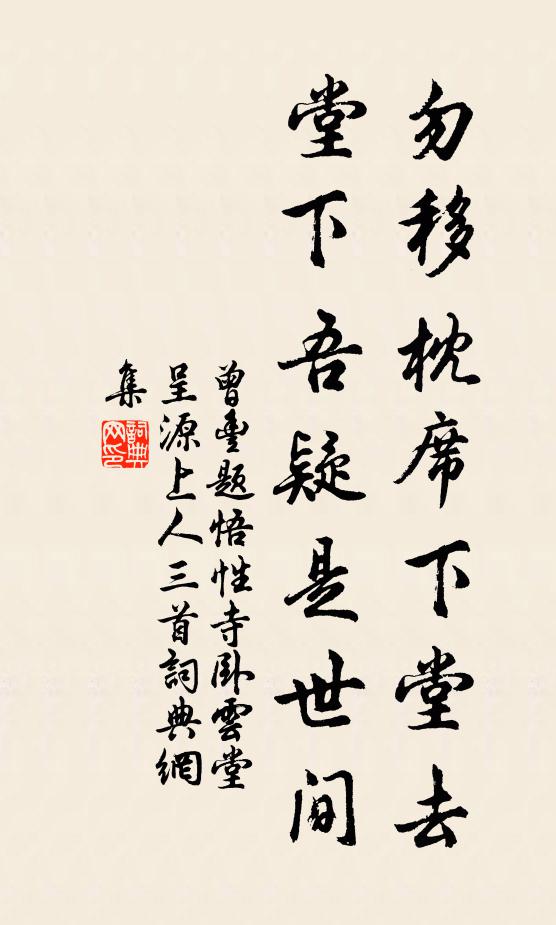 勿移枕席下堂去
堂下吾疑是世间
曾豐题悟性寺卧雲堂
呈源上人三首詞典網
集
詞典网印